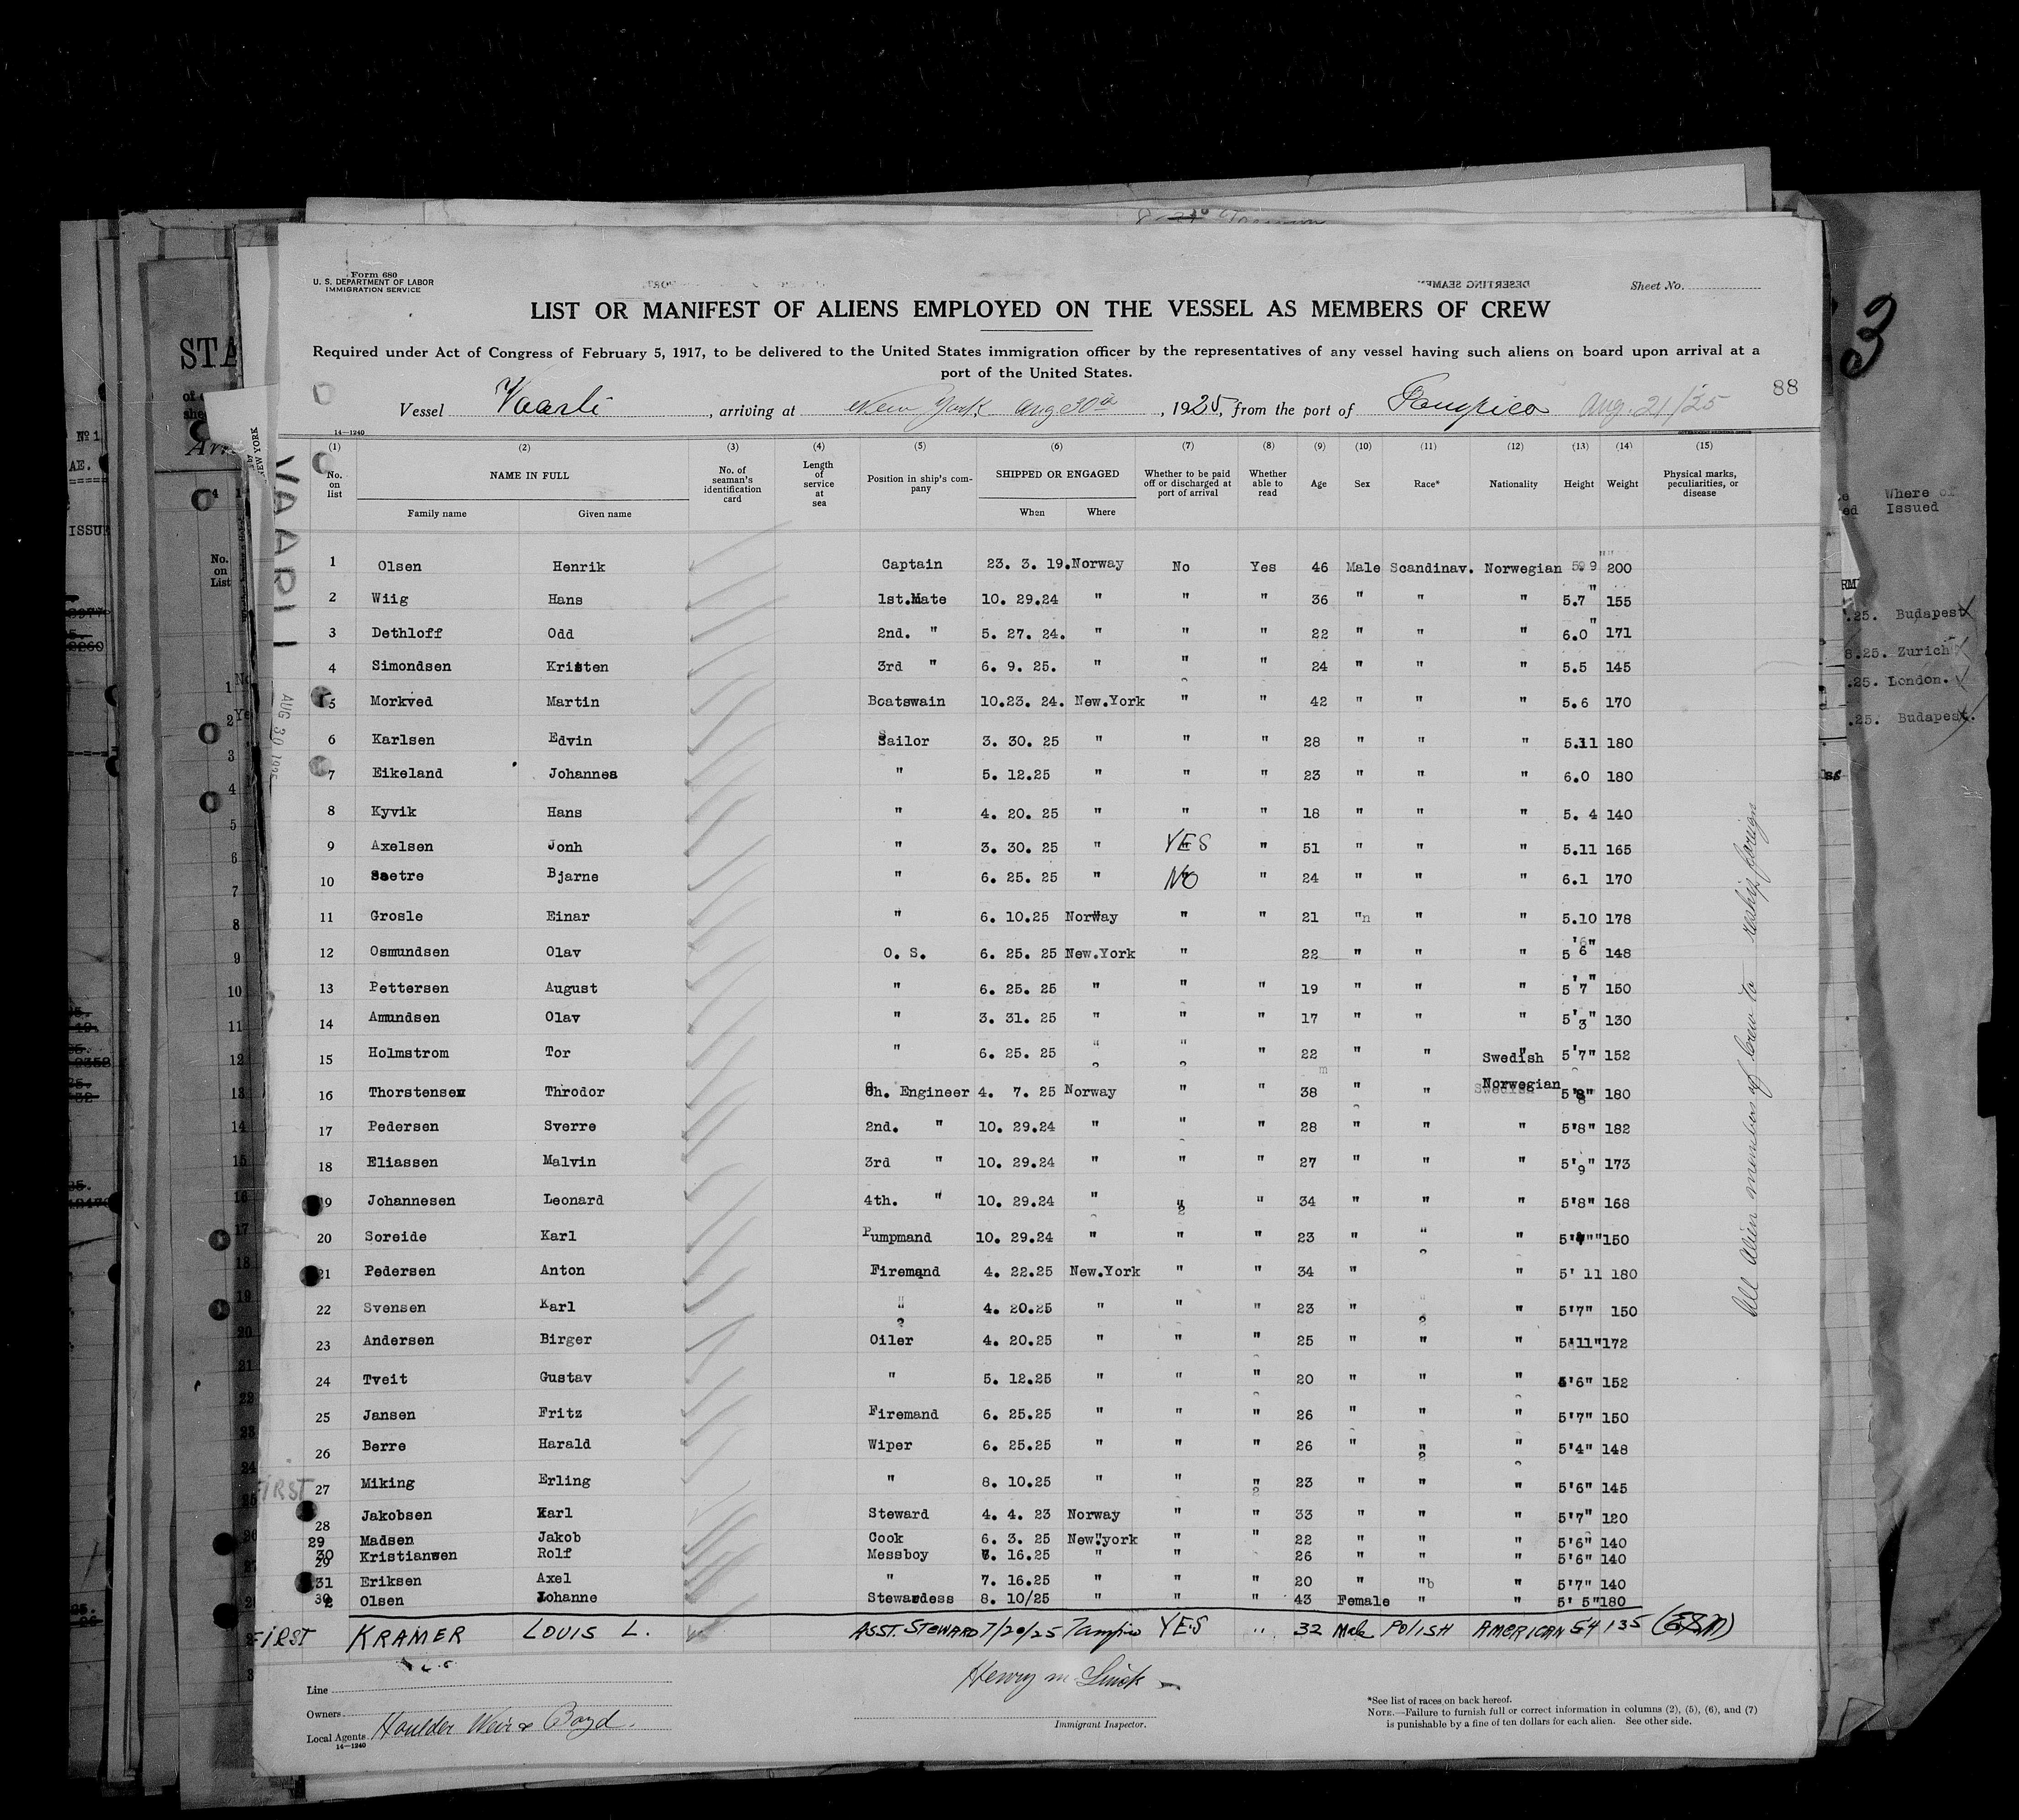 Form 680
U. S. DEPARTMENT OF LABOR
IMMIGRATION SERVICE
DESERTING SEAMEN
Sheet No.
LIST OR MANIFEST OF ALIENS EMPLOYED ON THE VESSEL AS MEMBERS OF CREW
Required under Act of Congress of February 5, 1917, to be delivered to the United States immigration officer by the representatives of any vessel having such aliens on board upon arrival at a
port of the United States.
88
Vessel Vaarli, arriving at New York Aug 30th, 1925, from the port of Tampico Aug. 21/25
14-1240
(1) (2) (3) (4) (5) (6) (7) (8) (9) (10) (11) (12) (13) (14) (15)
No. on list NAME IN FULL Family name Given name No. of seaman's identification card Length of service at sea Position in ship's company SHIPPED OR ENGAGED When Where Whether to be paid off or discharged at port of arrival Whether able to read Age Sex Race* Nationality Height Weight Physical marks, peculiarities, or disease
1 Olsen Henrik Captain 23. 3. 19. Norway No Yes 46 Male Scandinav. Norwegian 5 9 200
2 Wiig Hans 1st.Mate 10. 29.24 " " " 36 " " " 5.7" 155
3 Dethloff Odd 2nd. " 5. 27. 24. " " " 22 " " " 6.0" 171
4 Simondsen Kristen 3rd " 6. 9. 25. " " " 24 " " " 5.5 145
5 Morkved Martin Boatswain 10.23. 24. New.York " " 42 " " " 5.6 170
6 Karlsen Edvin Sailor 3. 30. 25 " " " 28 " " " 5.11 180
7 Eikeland Johannes " 5. 12.25 " " " 23 " " " 6.0 180
8 Kyvik Hans " 4. 20. 25 " " " 18 " " " 5. 4 140
9 Axelsen Jonh " 3. 30. 25 " YES " 51 " " " 5.11 165
10 Saetre Bjarne " 6. 25. 25 " NO " 24 " " " 6.1 170
11 Grosle Einar " 6. 10.25 Norway " " 21 "n " " 5.10 178
12 Osmundsen Olav O. S. 6. 25. 25 New.York " 22 " " " 5'6" 148
13 Pettersen August " 6. 25. 25 " " " 19 " " " 5'7" 150
14 Amundsen Olav " 3. 31. 25 " " " 17 " " " 5'3" 130
15 Holmstrom Tor " 6. 25. 25 " " " 22 " " Swedish 5'7" 152
16 Thorstensen Throdor Ch. Engineer 4. 7. 25 Norway " " 38 " " Norwegian 5'8" 180
17 Pedersen Sverre 2nd. " 10. 29.24 " " " 28 " " " 5'8" 182
18 Eliassen Malvin 3rd " 10. 29.24 " " " 27 " " " 5'9" 173
19 Johannesen Leonard 4th. " 10. 29.24 " " " 34 " " " 5'8" 168
20 Soreide Karl Pumpmand 10. 29.24 " " " 23 " " " 150
21 Pedersen Anton Firemand 4. 22.25 New.York " " 34 " " 5' 11 180
22 Svensen Karl " 4. 20.25 " " " 23 " " " 5'7" 150
23 Andersen Birger Oiler 4. 20.25 " " " 25 " " " 5'11" 172
24 Tveit Gustav " 5. 12.25 " " " 20 " " " 5'6" 152
25 Jansen Fritz Firemand 6. 25.25 " " " 26 " " " 5'7" 150
26 Berre Harald Wiper 6. 25.25 " " " 26 " " " 5'4" 148
FIRST 27 Miking Erling " 8. 10.25 " " " 23 " " " 5'6" 145
28 Jakobsen Karl Steward 4. 4. 23 Norway " " 33 " " " 5'7" 120
29 Madsen Jakob Cook 6. 3. 25 New.york " " 22 " " " 5'6" 140
30 Kristiansen Rolf Messboy 16.25 " " 26 " " " 5'6" 140
31 Eriksen Axel " 7. 16.25 " " " 20 " "b " 5'7" 140
32 Olsen Johanne Stewardess 8. 10/25 " " " 43 Female " " 5' 5" 180
FIRST KRAMER LOUIS L. ASST. STEWARD 7/20/25 Tampico YES " 32 Male POLISH AMERICAN 54 135
All Alien members of Crew to reship foreign
VAARLI
AUG 30 1925
Line
Owners
Local Agents Houlder Weir & Boyd.
14-1240
Immigrant Inspector.
*See list of races on back hereof.
NOTE.—Failure to furnish full or correct information in columns (2), (5), (6), and (7)
is punishable by a fine of ten dollars for each alien. See other side.
Where of
Issued
Budapest
8.25. Zurich
.25. London.
.25. Budapest.